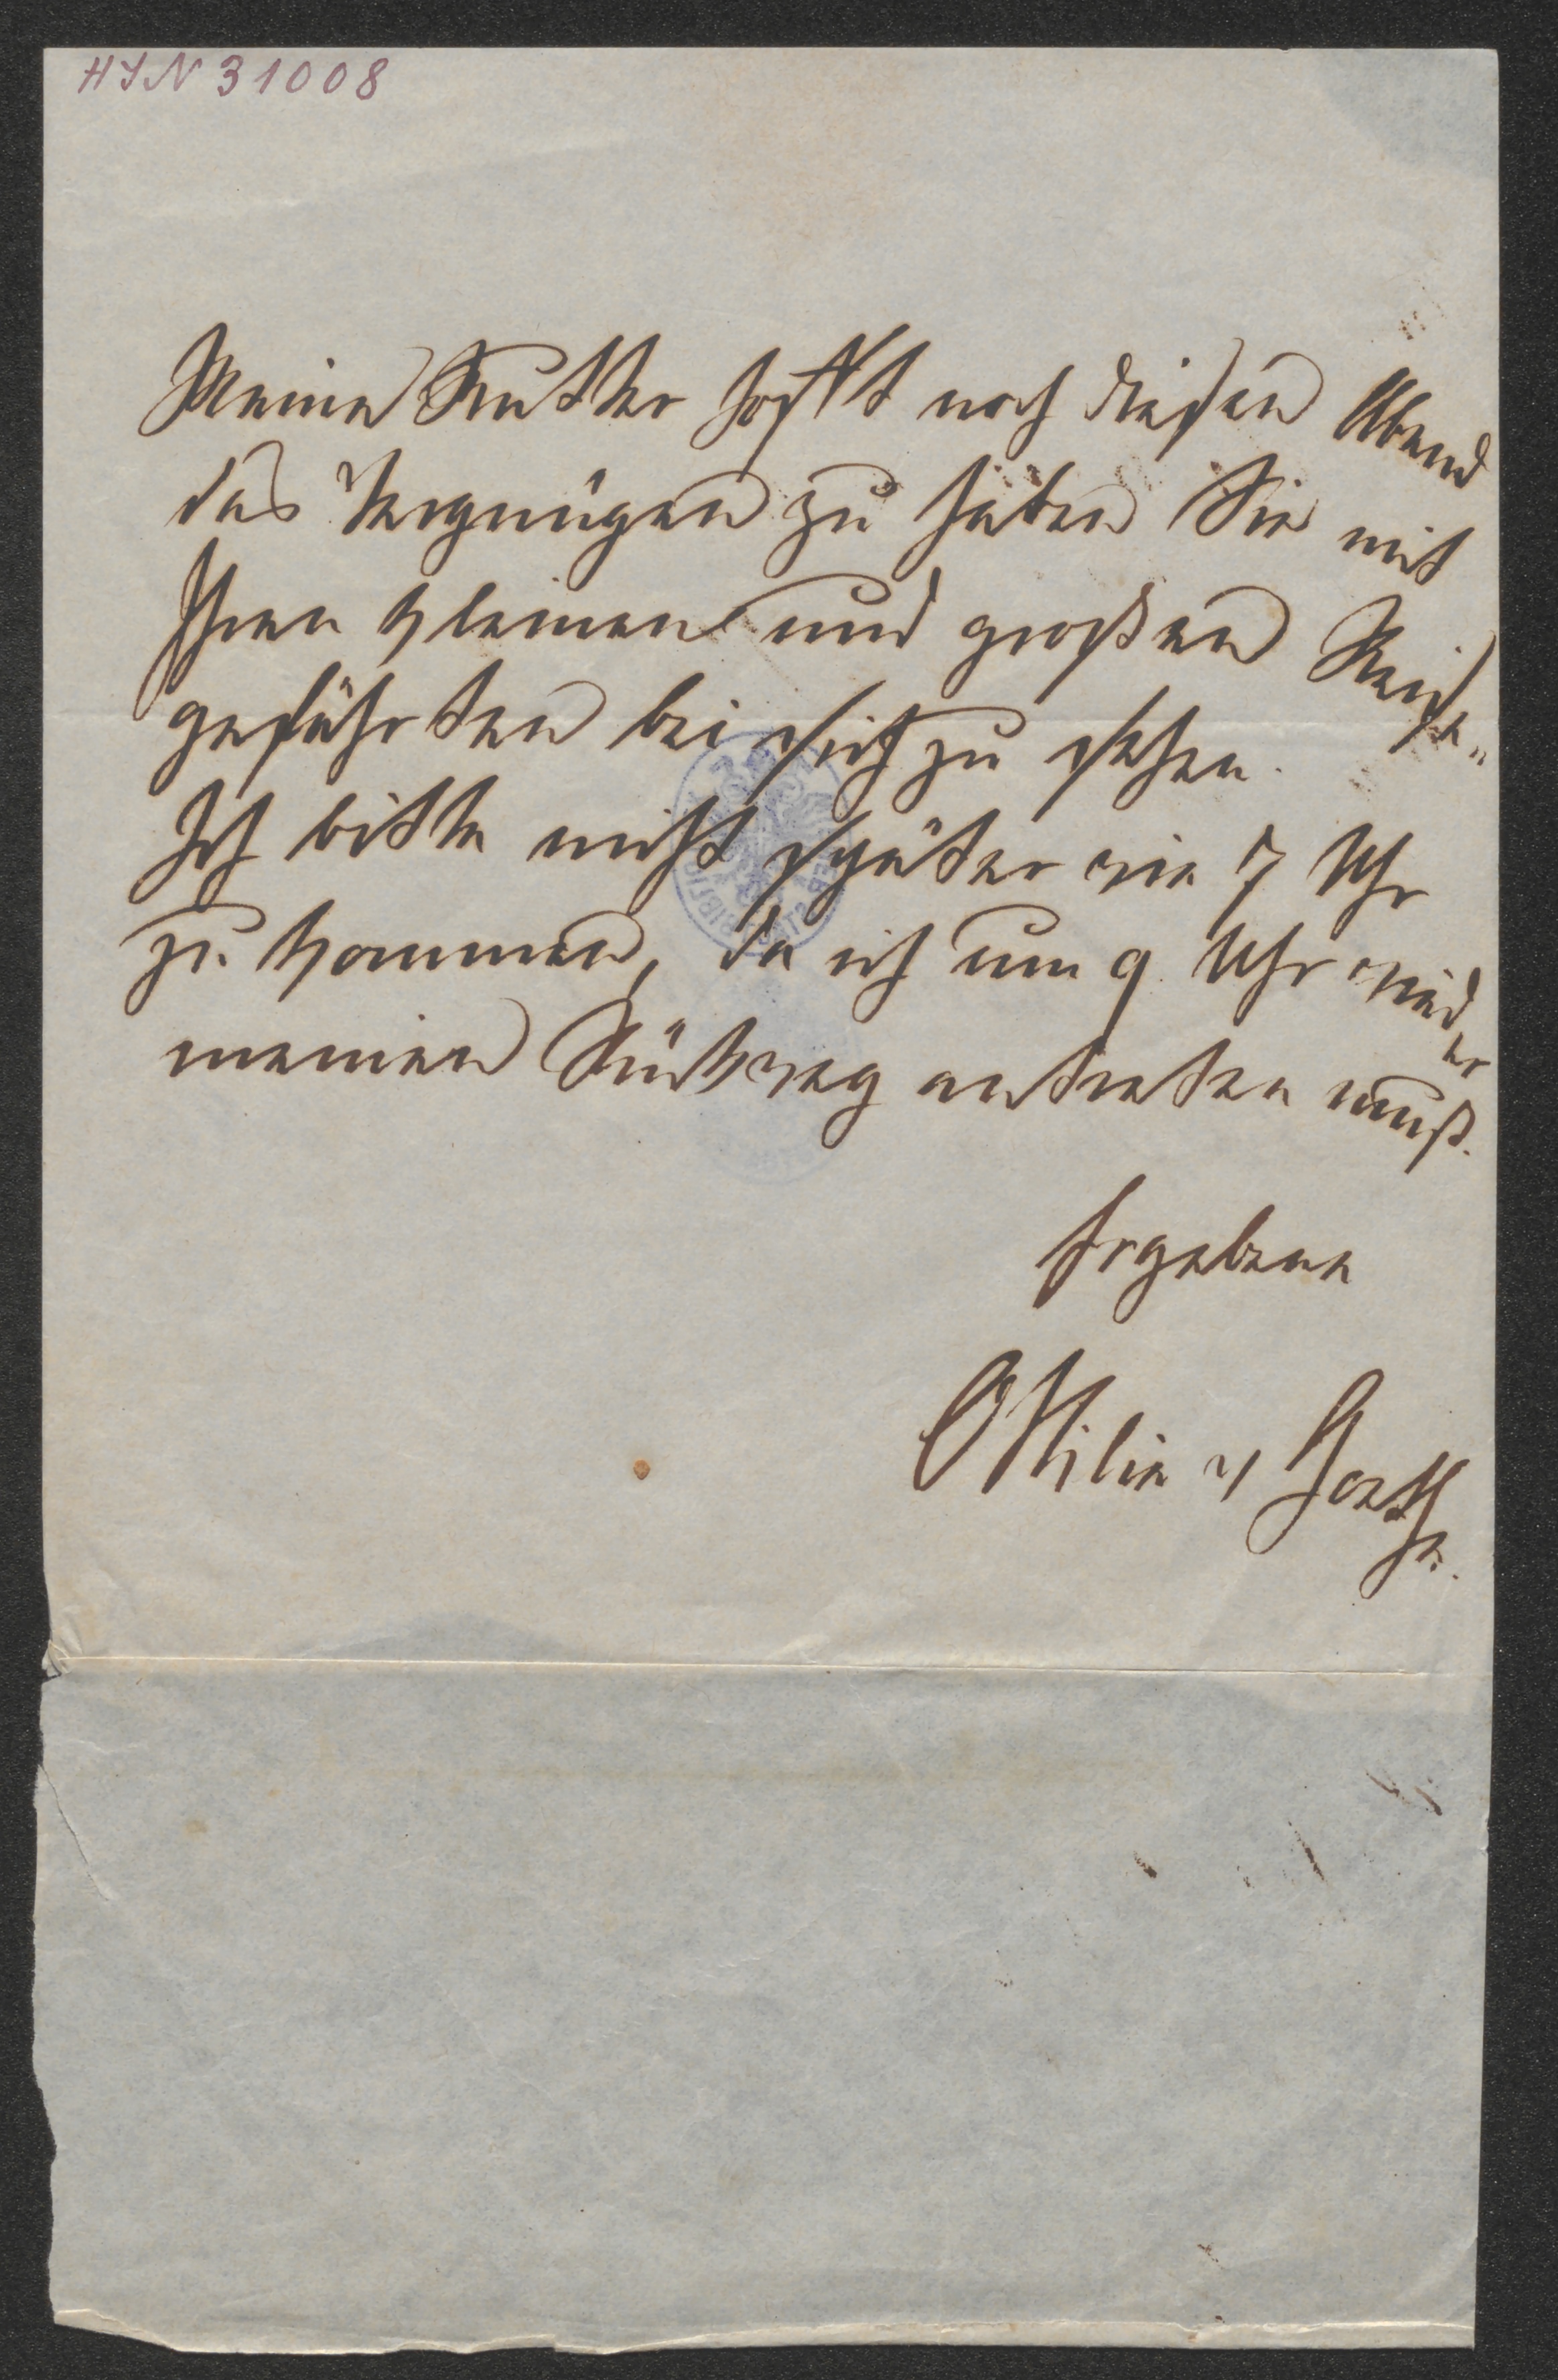 HIN 31008
Meine Mutter hofft noch diesen Abend
das Vergnügen zu haben Sie mit
Ihren kleinen und großen Reise„
gefährten bei sich zu sehen.
Ich bitte nicht später wie 7 Uhr
zu kommen, da ich um 9 Uhr wieder
meinen Rückweg antreten muß.
Ergebene
Ottilie v Goethe.